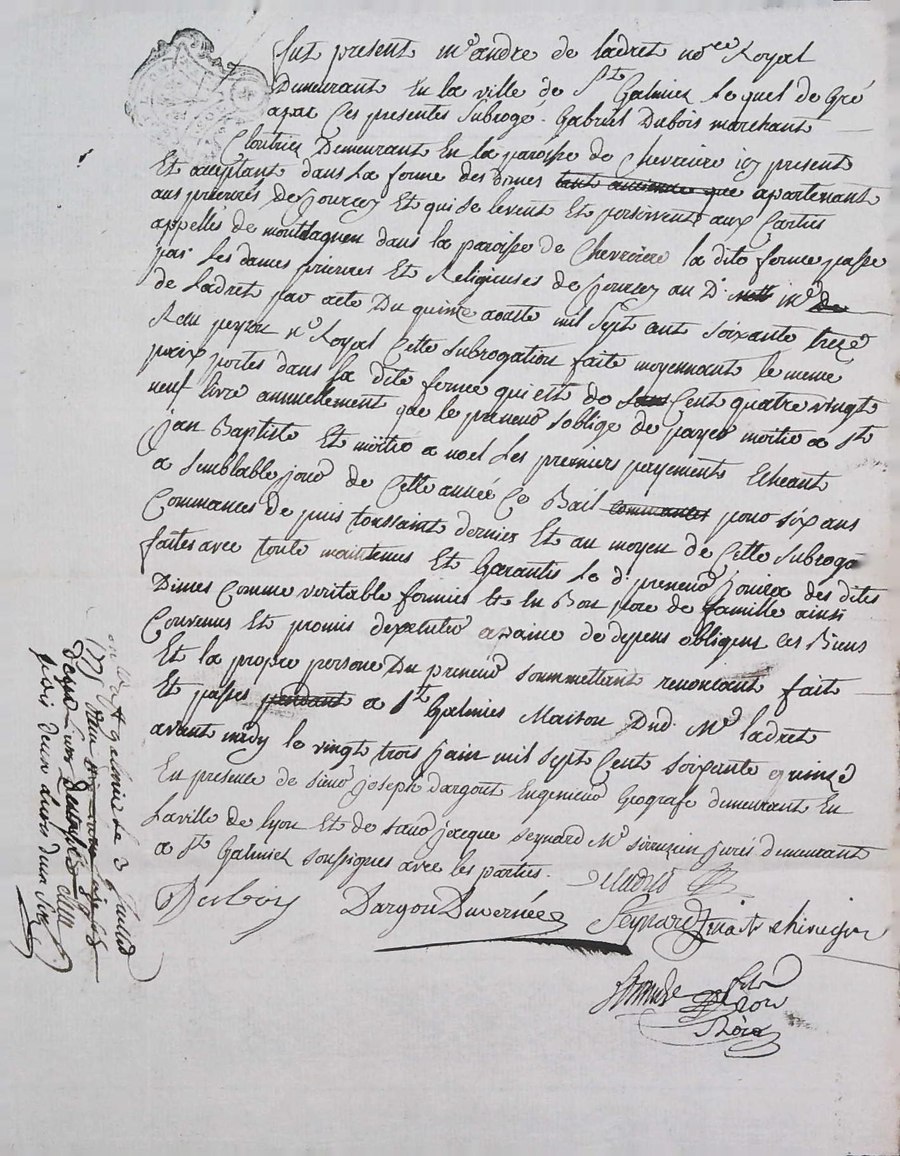 fut present me andre de ladret nore Royal
Demeurant En la ville de St Galmier Lequel de Gré
apar Ces presentes Subrogé Gabriel Dubois marchant
Cloutrier Demeurant En la paroisse de Chevriere icy present
Et aceptant dans La ferme des dimes tant ancienne que apartenant
aus prieurés de Jourcey Et qui se levent Et persoivent aux Cartiés
appelles de montdagneu dans la paroisse de Chevriere la dite ferme passe
par Les dames prieures Et Religieuses de Jourcey au Dt me de
de Ladret par acte Du quinze aoust mil Sept ant soixante treze
Reçu peyron nre Royal Cette subrogation faite moyennant le meme
prix portes dans la dite ferme qui est de Cent quatre vingt
neuf livre annuellement que le preneur soblige de payer moitie a st
Jan Baptiste Et moitie a noel Les premiers payements Echeant
a Semblable jour de Cette année Ce Bail pour six ans
Commances de puis toussaint dernier Et au moyen de Cette Subroga
faites avec toute maintenus Et Garantis Le dt preneur jouira des dites
Dimes Comme veritable fermier Et En Bon pere de famille ainsi
Convenus Et promis dexecuter apaine de depens obligens Ces Biens
Et la propre persone Du preneur soummettant renoncant fait
Et passes pendant a St Galmier Maison Dud. Me ladret
avant midy le vingt trois juin mil sept Cent soixante quinze
En presence de sieur joseph dargout Engenieur Geografe demeurant En
La ville de Lyon Et de sieur jacque seynard Me sirurgien juré demeurant
a St Galmier soussignes avec les parties.
Dubois Dargou Duvernée Seynard
a St Galmier Le 3 Juillet
1775